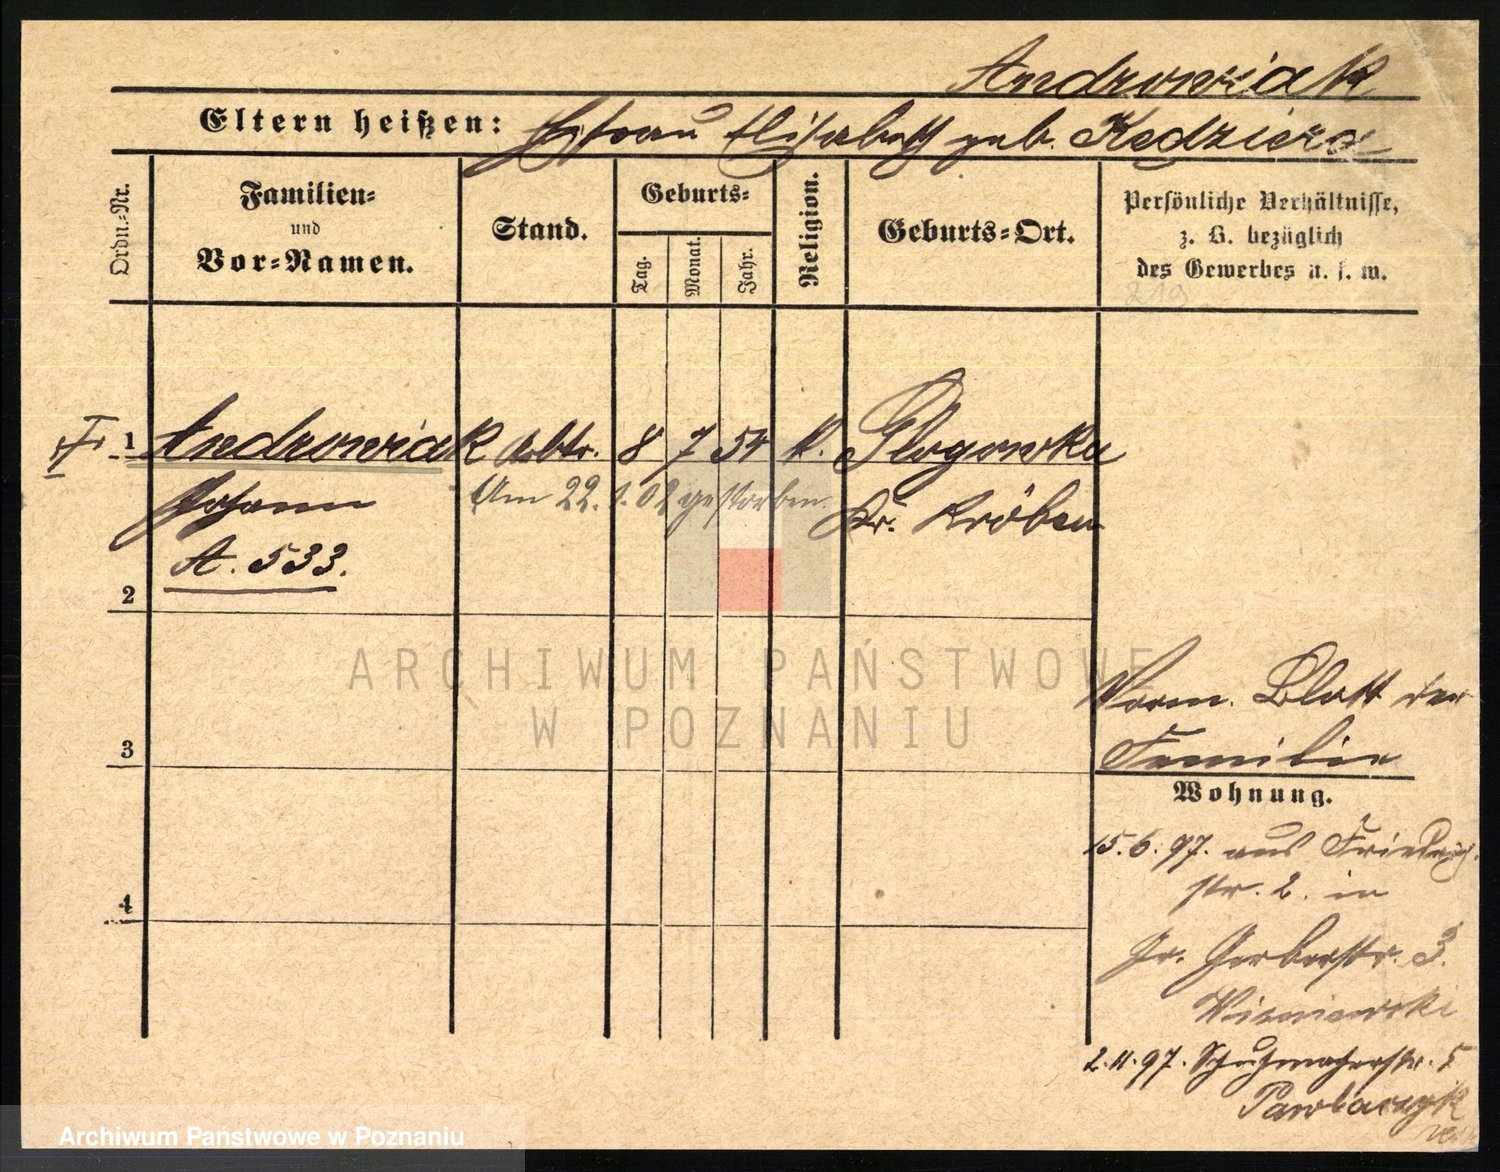 Androwiak
Eltern heißen: Ehefrau Elisabeth geb. Kędziera
Ordn.-Nr.
Familien-
und
Vor-Namen.
Stand.
Geburts-
Tag.
Monat.
Jahr.
Religion.
Geburts-Ort.
Persönliche Verhältnisse,
z. B. bezüglich
des Gewerbes u. s. w.
1 Androwiak Arbtr. 8 7 54 k. Glogowka
Johann Am 22.1.02 gestorben. Kr. Kröben
A. 533.
2
3
4
Verm. Blatt der
Familie
Wohnung.
15.6.97. aus Friedrich
str. 2. in
Gr. Gerberstr. 3.
Wisniewski
2.11.97. Schuhmacherstr. 5
ARCHIWUM PAŃSTWOWE
W POZNANIU
Archiwum Państwowe w Poznaniu